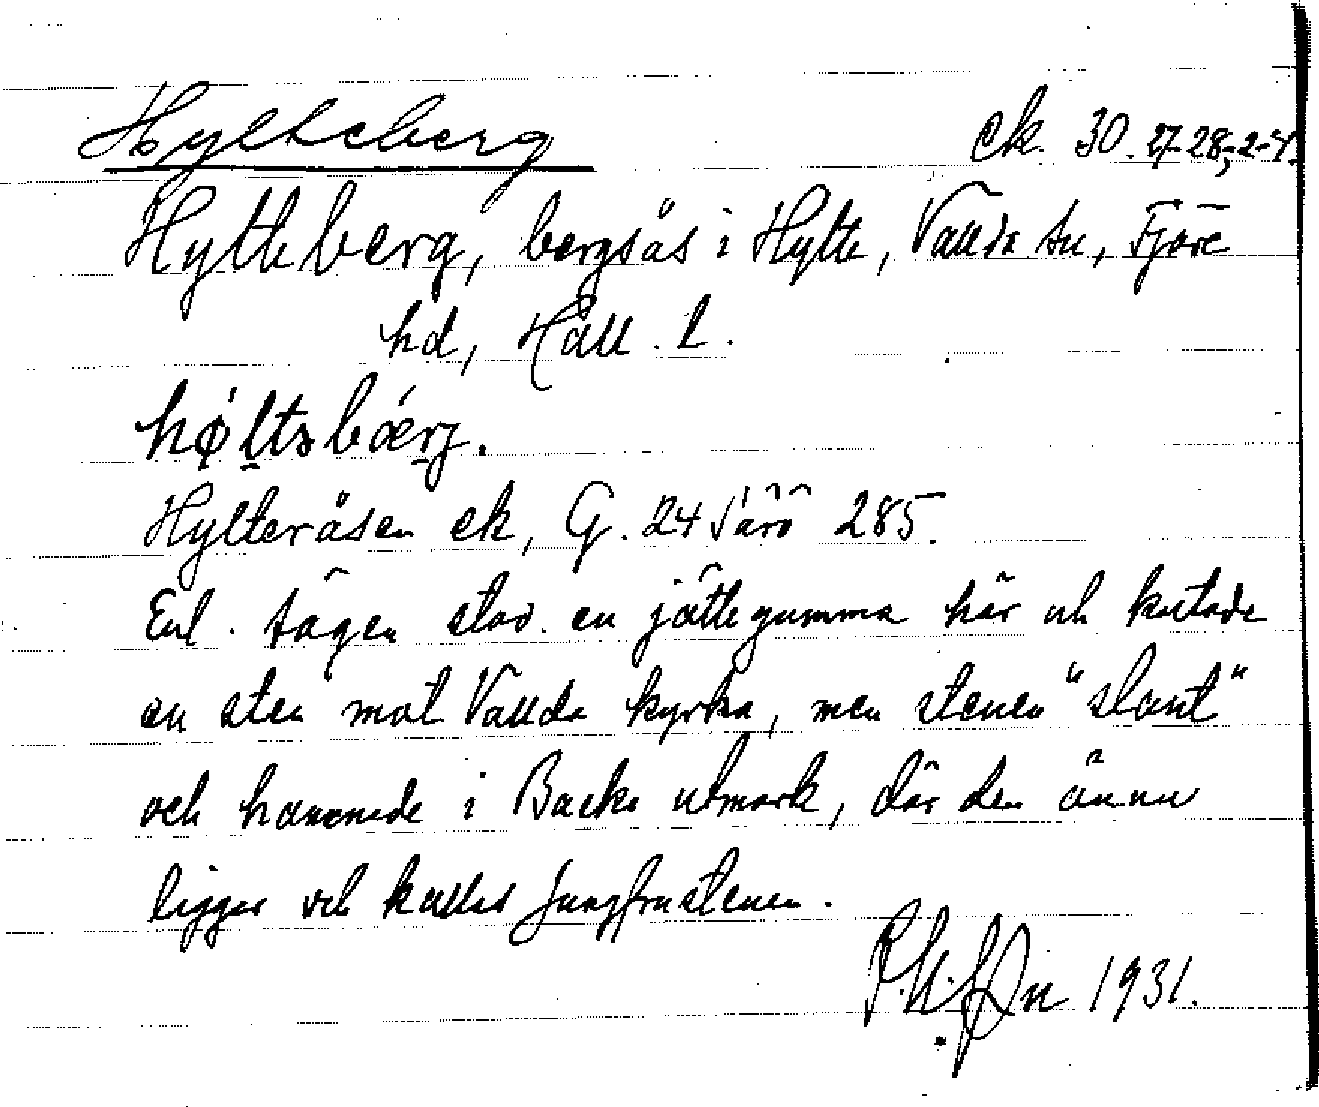 Hylteberg ek. 30. 27-28; 2-4.
Hylteberg, bergsås i Hylte, Vallda sn, Fjäre
hd, Hall. l.
høltsbærj.
Hylteråsen ek, G. 24 Särö 285.
Enl. sägen stod en jättegumma här och kastade
en sten mot Vallda kyrka, men stenen "slant"
och hamnade i Backa utmark, där den ännu
ligger och kallas Jungfrustenen.
1931.